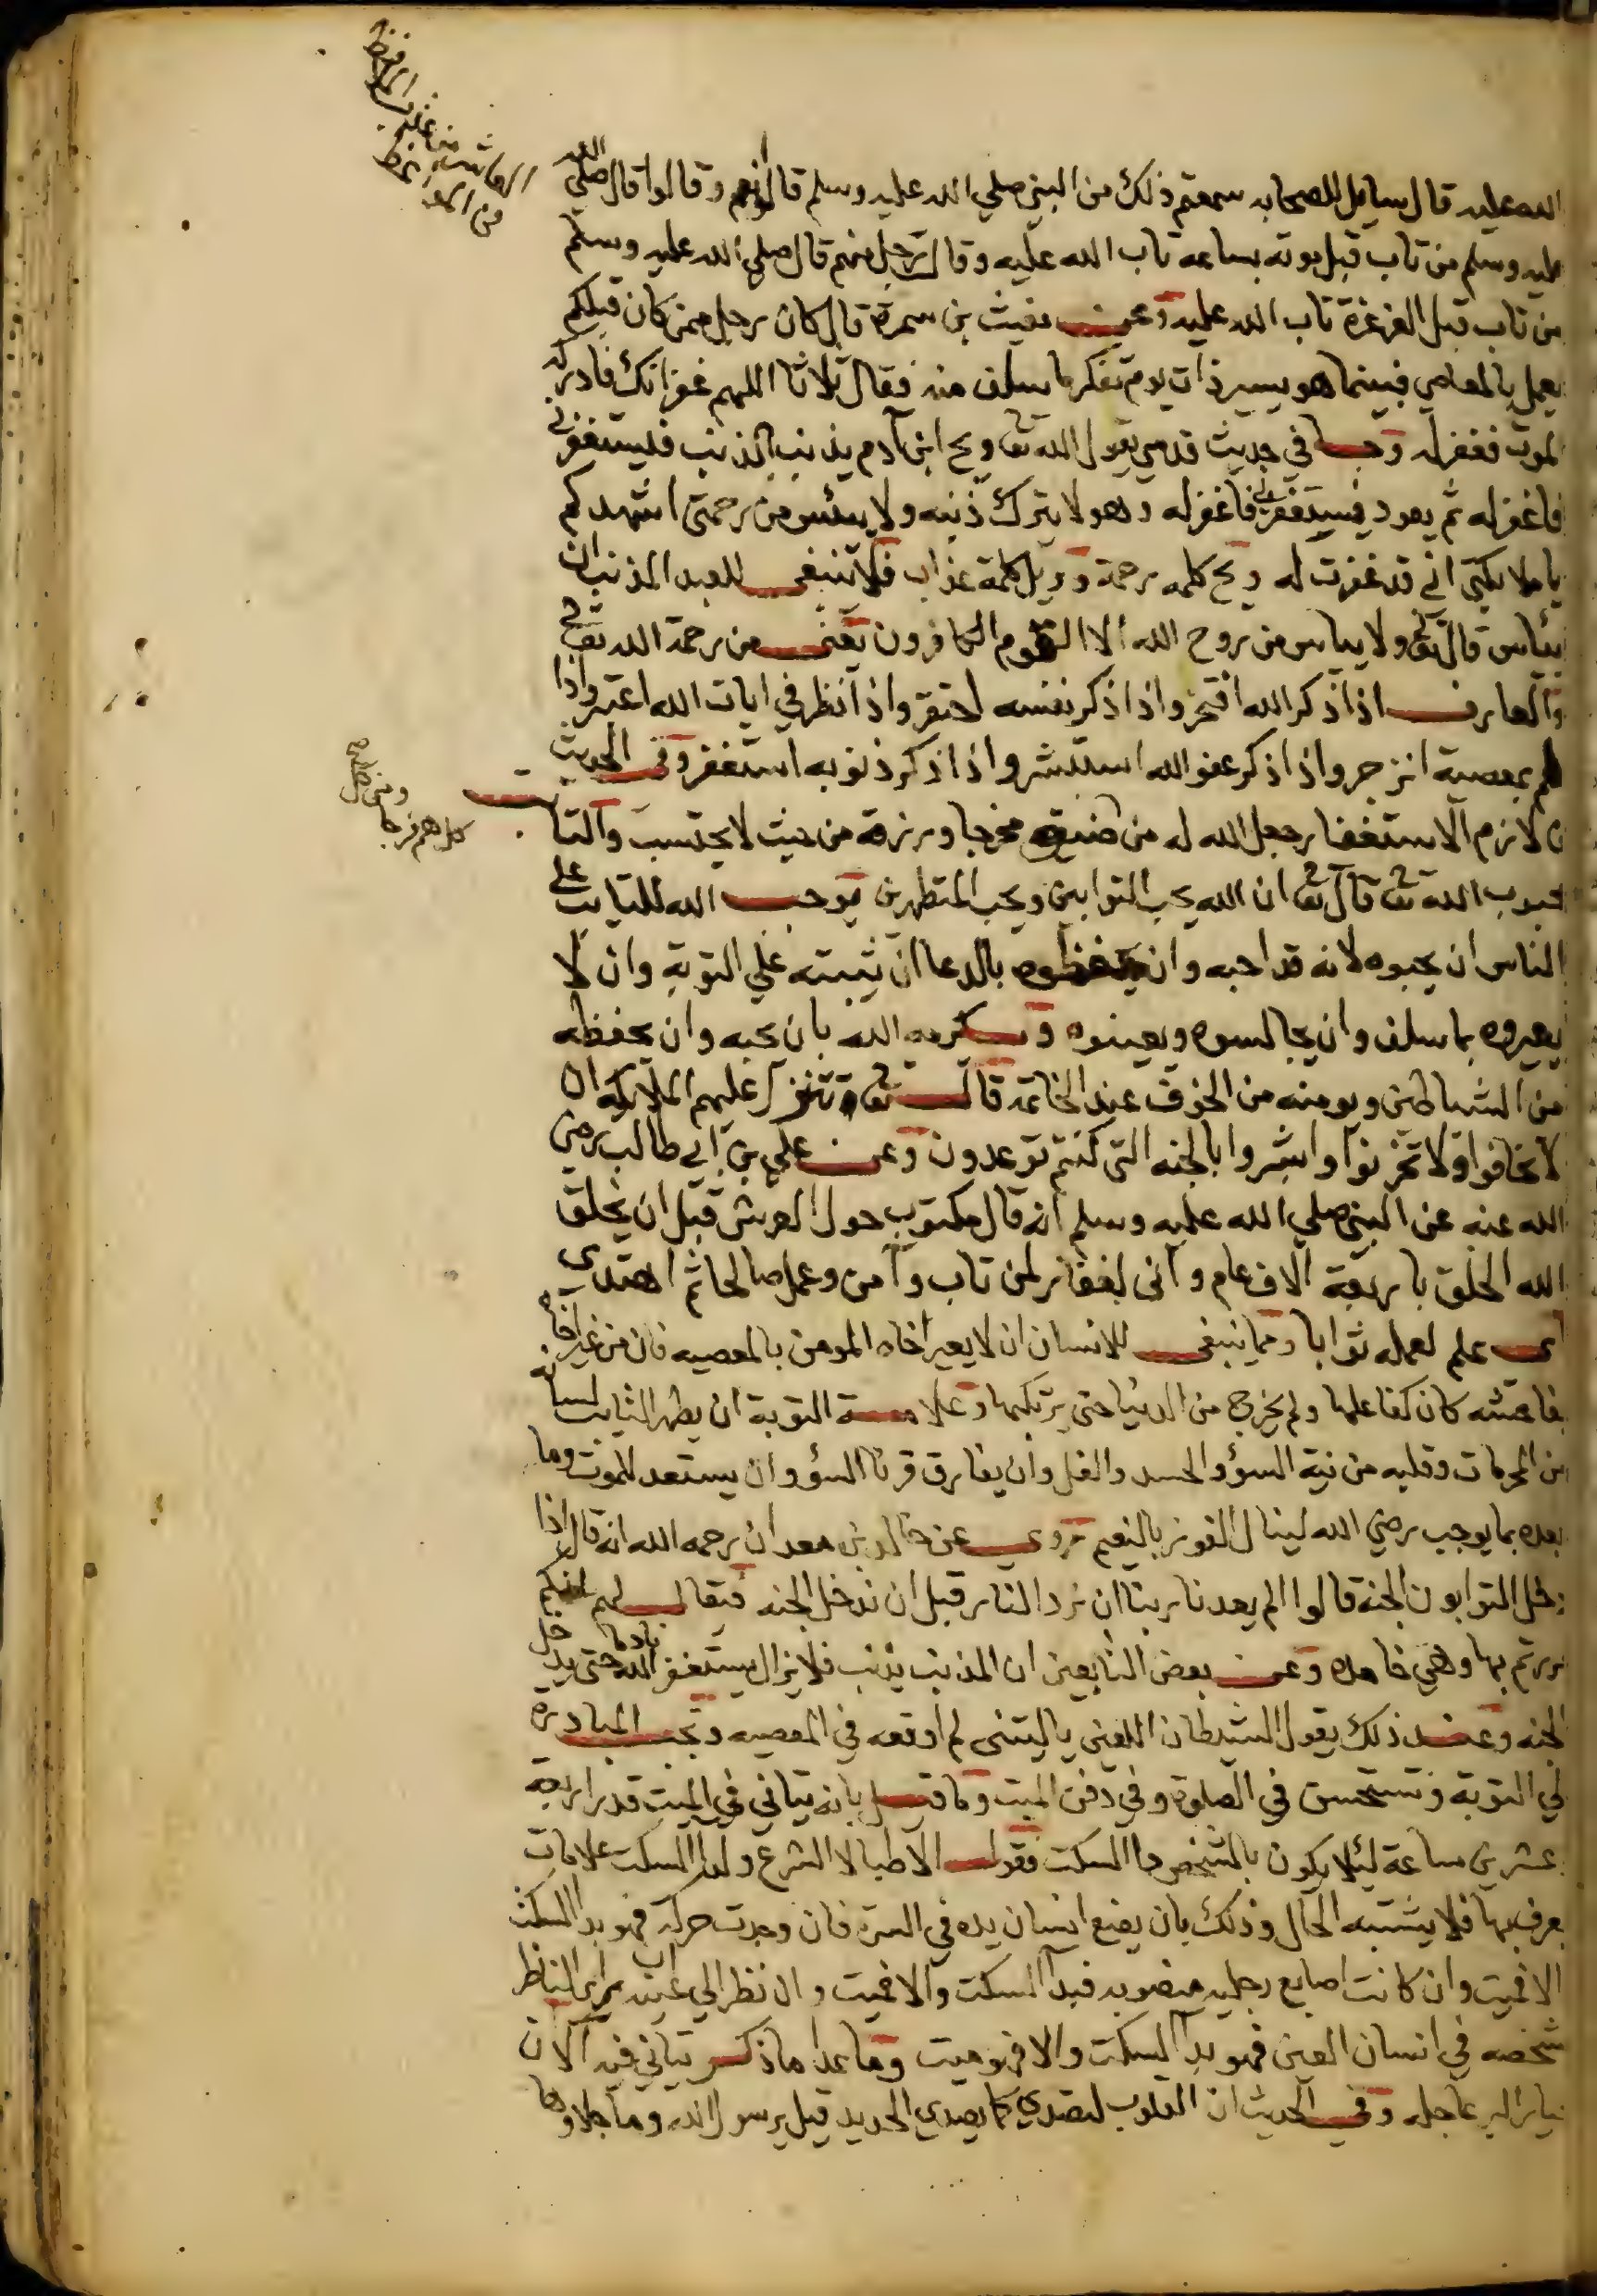 الله عليه قال سايل للصحابه سمعتم ذلك من النبي صلي الله عليه وسلم قالوا نعم وقالوا قال صلي الله
عليه وسلم من تاب قبل موته بساعه تاب الله عليه وقال رجل منهم قال صلي الله عليه وسلم
من تاب قبل الغرغرة تاب الله عليه وعن مغيث بن سمرة قال كان رجل ممن كان قبلكم
يعمل بالمعاصي فبينما هو يسير ذات يوم تفكر ما سلف منه فقال ثلاثا اللهم غفرانك فادركه
الموت فغفر له وجا في حديث قدسي يقول الله تعا ويح ابن آدم يذنب الذنب فليستغفرني
فاغفر له ثم يعود فيستغفرني فاغفر له وهو لا يترك ذنبه ولا ييئس من رحمتي اشهدكم
يا ملايكتي اني قد غفرت له ويح كلمه رحمة وويل كلمة عذاب فلا ينبغي للعبد المذنب ان
ييئاس قال تعا ولا يياس من روح الله الا القوم الكافرون يعني من رحمة الله تعا
والعارف اذا ذكر الله افتخر واذا ذكر نفسه احتقر واذا نظر في ايات الله اعتبر واذا
هم بمعصية انزجر واذا ذكر عفو الله استبشر واذا ذكر ذنوبه استغفر وفي الحديث
من لازم الاستغفار جعل الله له من ضيقه مخرجا ورزقه من حيث لا يحتسب والتايب
ومن كل
كل هم فرجا
محبوب الله تعا قال تعا ان الله يحب التوابين ويحب المتطهرين يوجب الله للتايب علي
الناس ان يحبوه لانه قد احبه وان يحفظوه بالدعا ان يثبته علي التوبة وان لا
يعيروه بما سلف وان يجالسوه ويعينوه ويكرمه الله بان يحبه وان يحفظه
من الشياطين ويومنه من الخوف عند الخاتمة قال تعا تتنزل عليهم الملايكة ان
لا تخافوا ولا تحزنوا وابشروا بالجنه التي كنتم توعدون وعن علي بن ابي طالب رضي
الله عنه عن النبي صلي الله عليه وسلم انه قال مكتوب حول العرش قبل ان يخلق
الله الخلق باربعة الاف عام واني لغفار لمن تاب وآمن وعمل صالحا ثم اهتدي
اي علم لعمله ثوابا ومما ينبغي للانسان ان لا يعير اخاه المومن بالمعصيه فان من عير اخاه
بفاحشه كان كفاعلها ولم يخرج من الدنيا حتي يرتكبها وعلامة التوبة ان يطهر التايب لسانه
من المحرمات وقلبه من نية السؤ والحسد والغل وان يفارق قرنا السؤ وان يستعد للموت وما
بعده بما يوجب رضي الله لينال الفوز بالنعيم وروي عن خالد بن معدان رحمه الله انه قال اذا
دخل التوابون الجنة قالوا الم يعدنا ربنا ان نرد النار قبل ان ندخل الجنه فيقال لهم انكم
مررتم بها وهي خامده وعن بعض التابعين ان المذنب يذنب فلا يزال يستغفر الله نادما حتي يدخل
الجنه وعند ذلك يقول الشيطان اللعين يا ليتني لم اوقعه في المعصيه وتجب المبادرة
الي التوبة وتستحسن في الصلوة وفي دفن الميت وما قيل بانه يتاني في الميت قدر اربعة
عشرين ساعة لئلا يكون بالشخص دا السكت فقول الاطبا لا الشرع ولدا السكت علامات
يعرف بها فلا يشتبه الحال وذلك بان يضع انسان يده في السرة فان وجدت حركه فهو بدا السكت
الا فميت وان كانت اصابع رجليه منصوبه فبدا السكت والا فميت وان نظر الي عينيه يري الناظر
شخصه في انسان العين فهو بدا السكت والا فهو ميت وما عدا ما ذكر يتاني فيه الان
عاجله وفي الحديث ان القلوب لتصدي كما يصدي الحديد قيل يرسول الله وما جلاوها